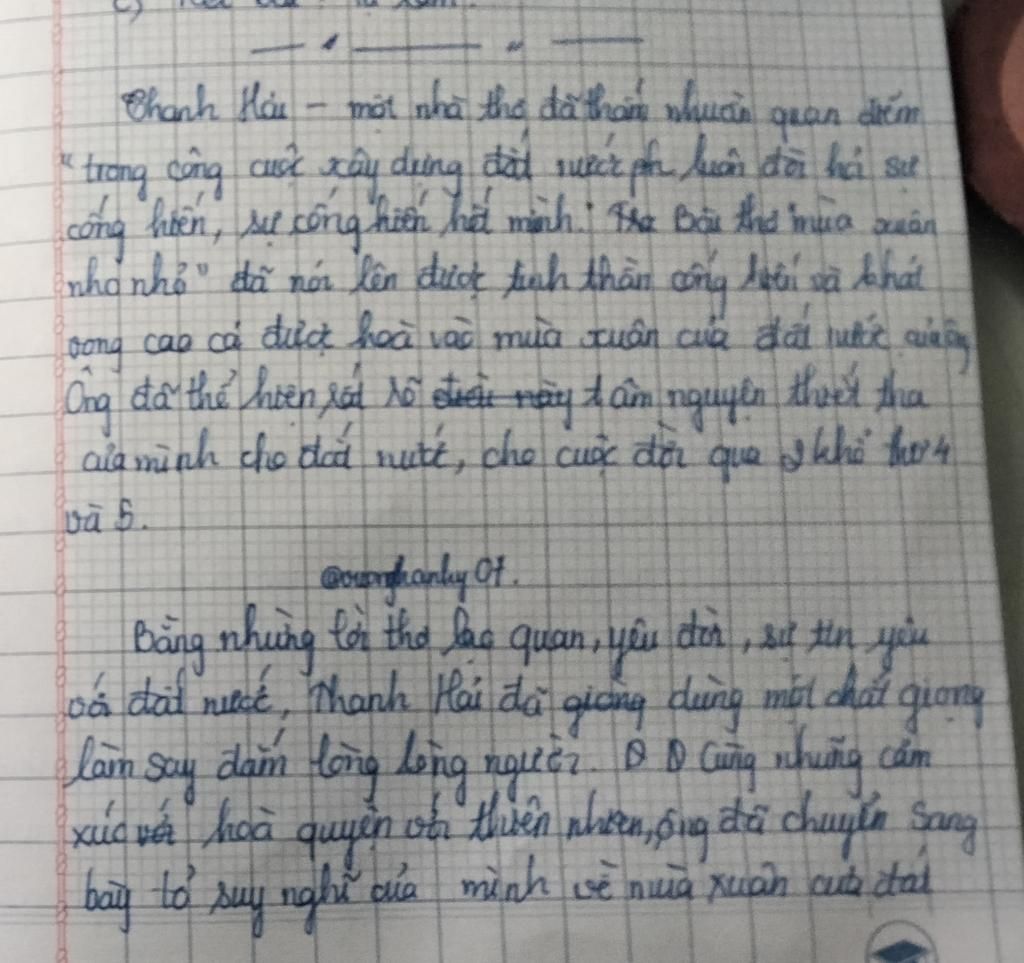 Thanh Hải – một nhà thơ đã thấm nhuần quan điểm
"trong công cuộc xây dựng đất nước luôn đòi hỏi sự
cống hiến, sự cống hiến hết mình." Bài thơ "mùa xuân
nho nhỏ" đã nói lên được tinh thần cống hiến và khát
vọng cao cả được hoà vào mùa xuân của đất nước của ông
Ông đã thể hiện rất rõ điều này tâm nguyện thiết tha
của mình cho đất nước, cho cuộc đời qua 2 khổ thơ 4
và 5.
Bằng những lời thơ lạc quan, yêu đời, sự tin yêu
với đất nước, Thanh Hải đã giống dùng một chất giọng
làm say đắm lòng lòng người. Cùng những cảm
xúc với hoà quyện với thiên nhiên, ông đã chuyển sang
bày tỏ suy nghĩ của mình về mùa xuân của đất